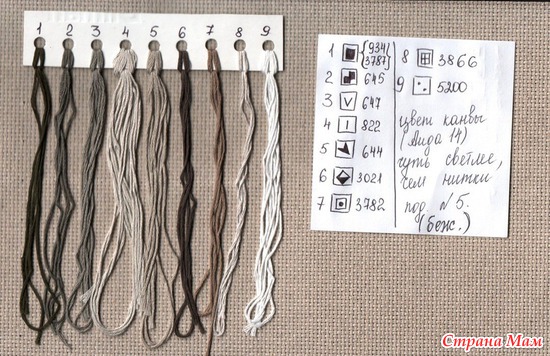 1 2 3 4 5 6 7 8 9
1 {934/
3787}
2 645
3 647
4 822
5 644
6 3021
7 3782
8 3866
9 5200
цвет канвы
(Аида 14)
чуть светлее,
чем нитки
под №5.
(беж.)
Страна Мам